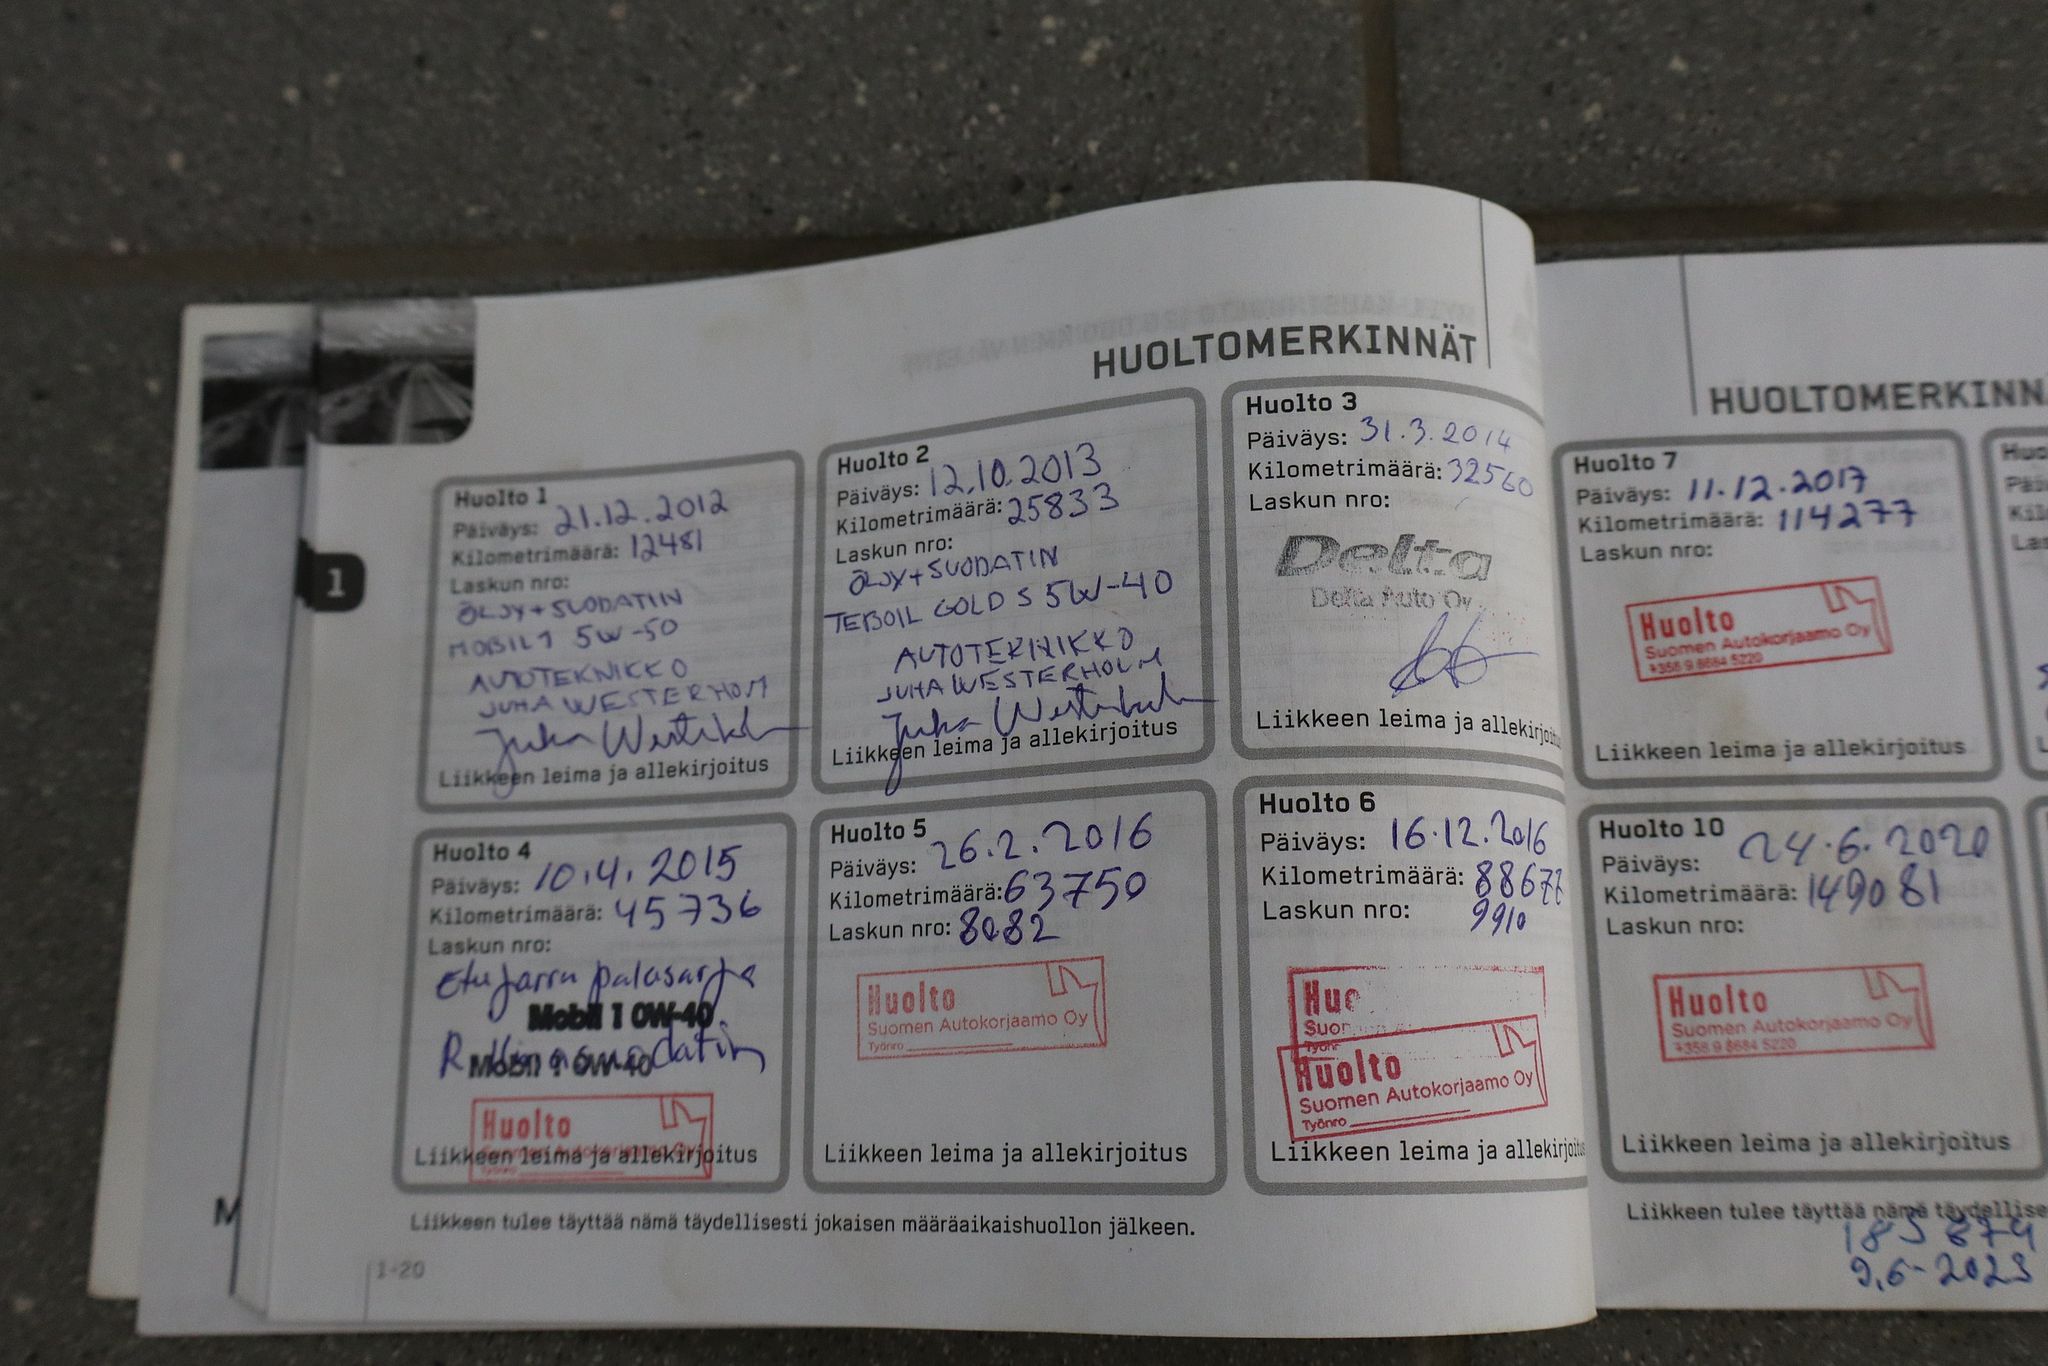 HUOLTOMERKINNÄT
Huolto 1
Päiväys: 21.12.2012
Kilometrimäärä: 12481
Laskun nro:
ÖLJY+SUODATIN
MOBIL 1 5W-50
AUTOTEKNIKKO
JUHA WESTERHOLM
Juha Westerholm
Liikkeen leima ja allekirjoitus
Huolto 2
Päiväys: 12.10.2013
Kilometrimäärä: 25833
Laskun nro:
ÖLJY+SUODATIN
TEBOIL GOLD S 5W-40
AUTOTEKNIKKO
JUHA WESTERHOLM
Juha Westerholm
Liikkeen leima ja allekirjoitus
Huolto 3
Päiväys: 31.3.2014
Kilometrimäärä: 32560
Laskun nro:
Delta
Delta Auto Oy
Liikkeen leima ja allekirjoitus
Huolto 4
Päiväys: 10.4.2015
Kilometrimäärä: 45736
Laskun nro:
Etujarru palasarja
Mobil 1 0W-40
Mobil 1 0W-40
Huolto
Suomen Autokorjaamo Oy
Liikkeen leima ja allekirjoitus
Huolto 5
Päiväys: 26.2.2016
Kilometrimäärä: 63750
Laskun nro: 8082
Huolto
Suomen Autokorjaamo Oy
Työnro
Liikkeen leima ja allekirjoitus
Huolto 6
Päiväys: 16.12.2016
Kilometrimäärä: 88677
Laskun nro:
9910
Huo
Suom
Työnr
Huolto
Suomen Autokorjaamo Oy
Työnro
Liikkeen leima ja allekirjoitus
Liikkeen tulee täyttää nämä täydellisesti jokaisen määräaikaishuollon jälkeen.
1-20
1
M
HUOLTOMERKINN
Huolto 7
Päiväys: 11.12.2017
Kilometrimäärä: 114277
Laskun nro:
Huolto
Suomen Autokorjaamo Oy
+358 9 8684 5220
Liikkeen leima ja allekirjoitus
Huolto 10
Päiväys: 24.6.2020
Kilometrimäärä: 149081
Laskun nro:
Huolto
Suomen Autokorjaamo Oy
+358 9 8684 5220
Liikkeen leima ja allekirjoitus
Liikkeen tulee täyttää nämä täydellise
185 874
9.6-2023